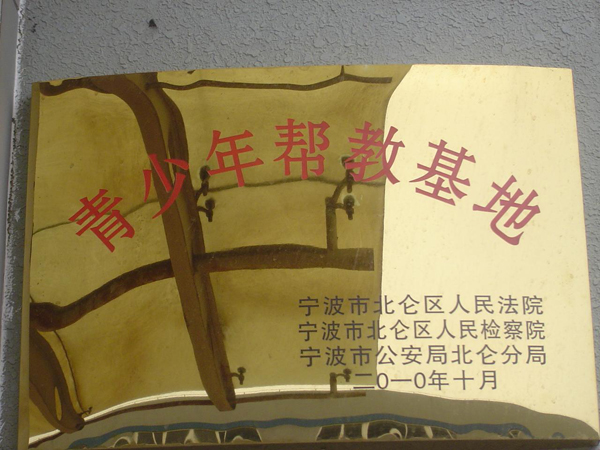 青少年帮教基地
宁波市北仑区人民法院
宁波市北仑区人民检察院
宁波市公安局北仑分局
二0一0年十月